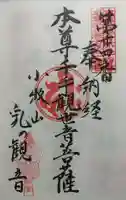 第廿四番
奉
納経
本尊千手観世音菩薩
小牧山
乳の観音